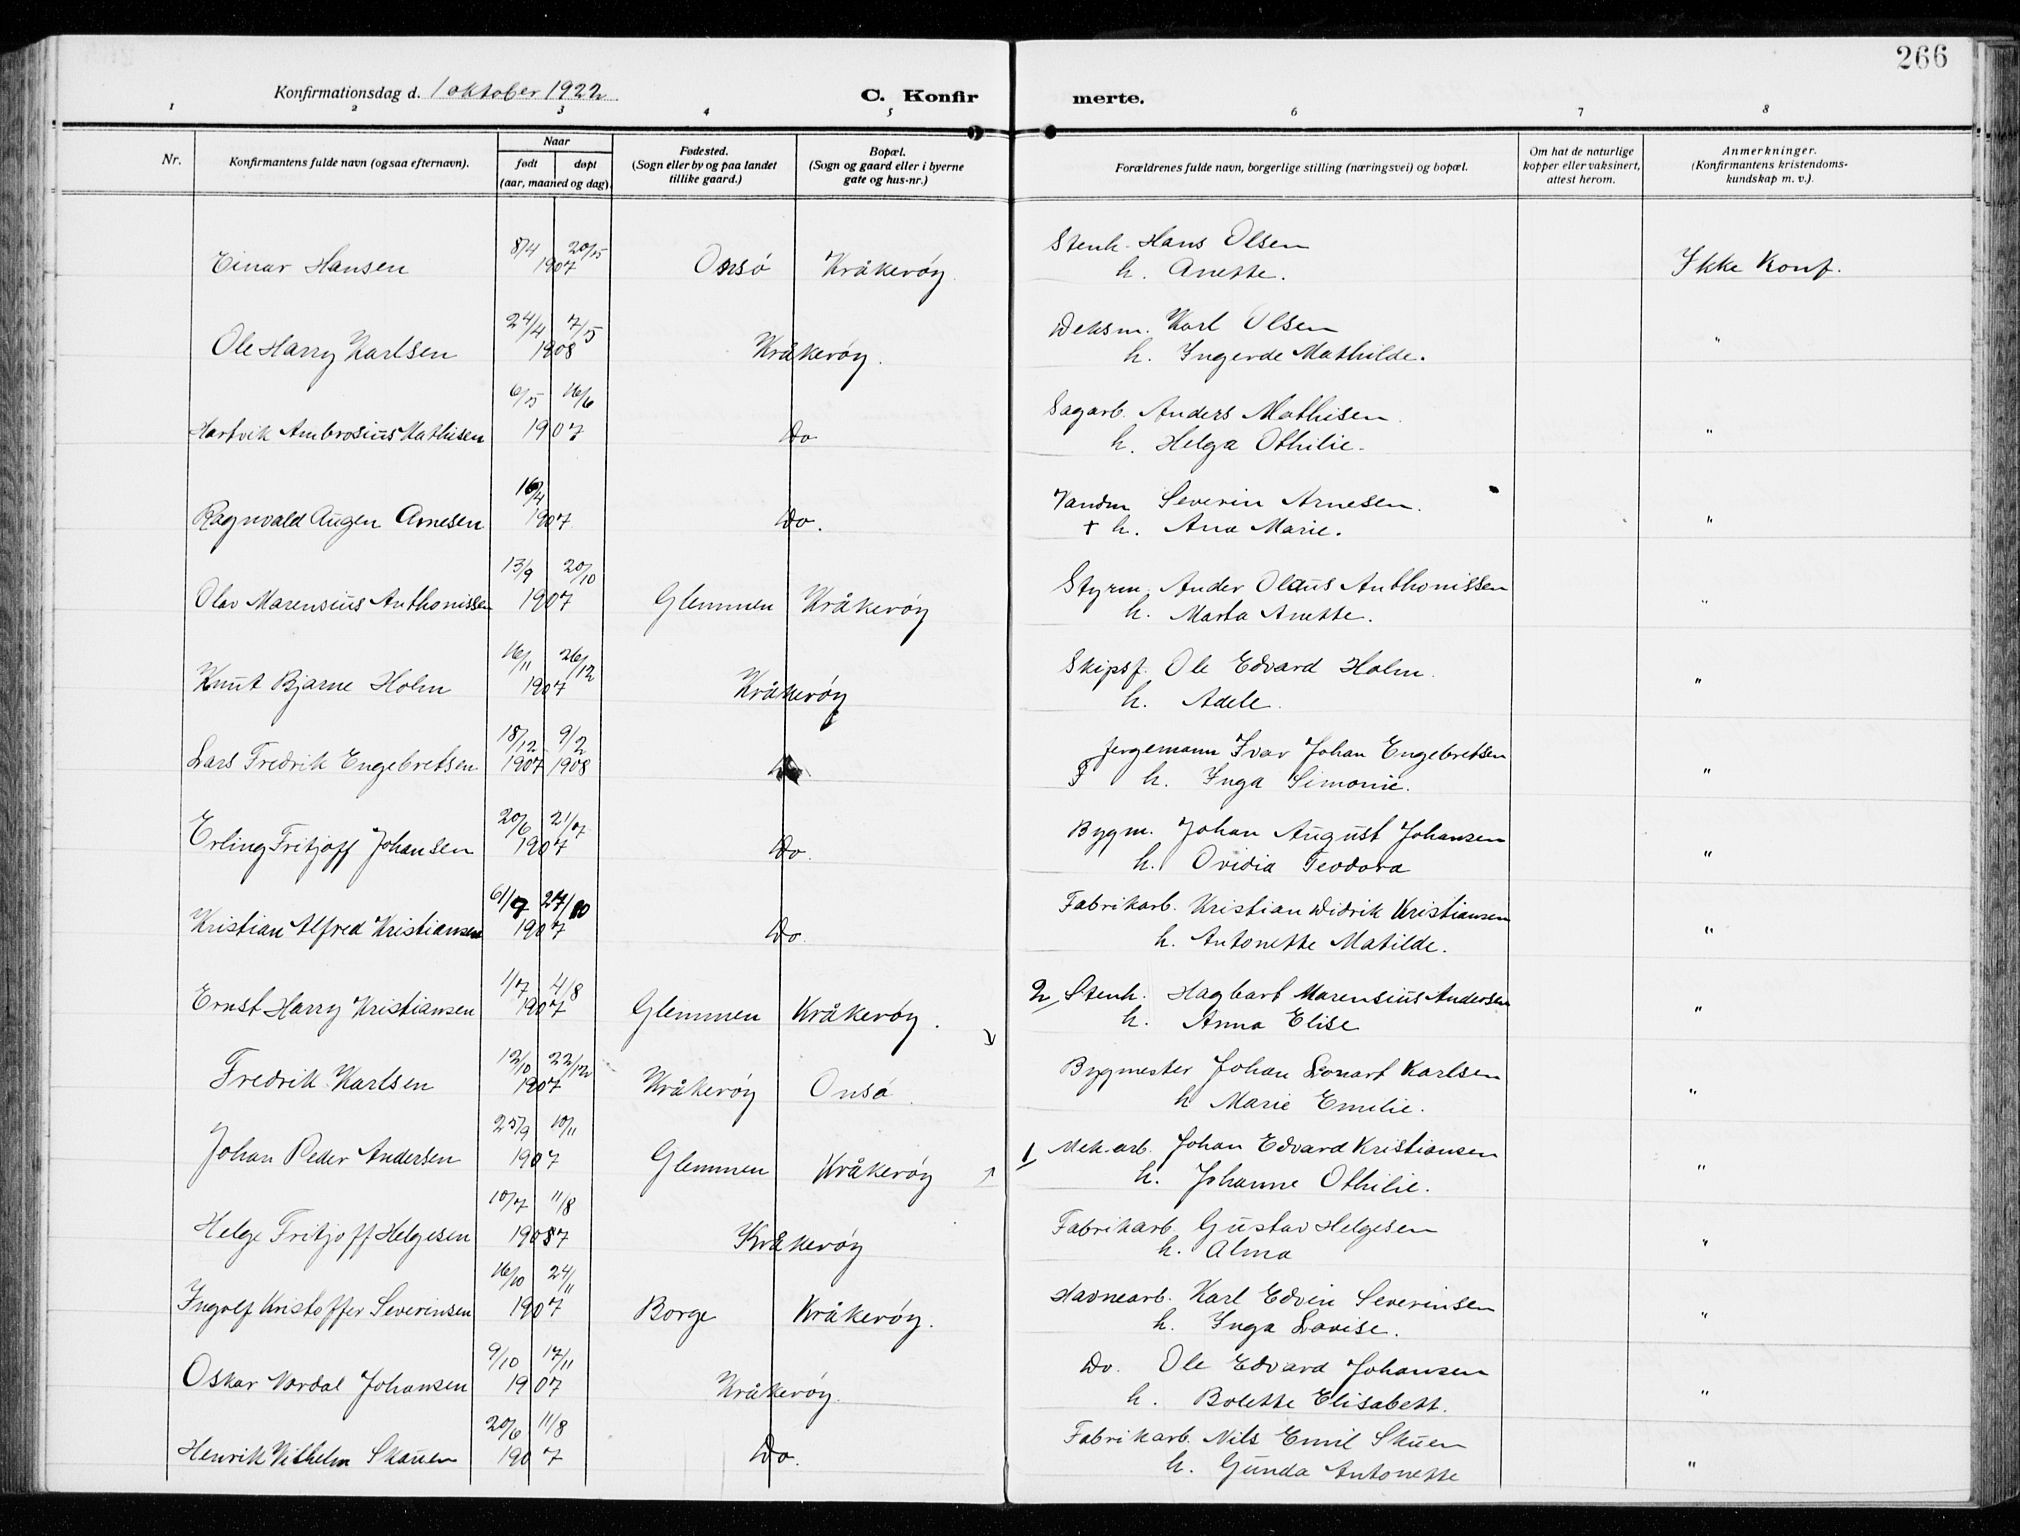 266
Konfirmationsdag d. 1 oktober 1922
C. Konfirmerte.
1 2 3 4 5 6 7 8
Nr. Konfirmantens fulde navn (ogsaa efternavn). Naar født døpt (aar, maaned og dag). Fødested. (Sogn eller by og paa landet tillike gaard.) Bopæl. (Sogn og gaard eller i byerne gate og hus-nr.) Forældrenes fulde navn, borgerlige stilling (næringsvei) og bopæl. Om hat de naturlige kopper eller vaksinert, attest herom. Anmerkninger. (Konfirmantens kristendoms-kundskap m. v.).
Einar Hansen 8/4 20/5 1907 Onsø Kråkerøy. Stenh. Hans Olsen
h. Anette. Ikke Konf.
Ole Harry Karlsen 24/4 7/5 1908 Kråkerøy. Karl Olsen
h. Ingerde Mathilde. "
Hartvik Ambrosius Mathisen 6/5 16/6 1907 Do Sagarb. Anders Mathisen.
h. Helga Othilie. "
Ragnvald Augen Arnesen /4 1907 Do. Vandm Severin Arnesen.
+ h. Ana Marie. "
Olav Marensius Anthonissen 13/9 20/10 1907 Glemmen Kråkerøy Styrm. Ander Olaus Anthonissen
h. Marta Anette. "
Knut Bjarne Holm 16/11 26/12 1907 Kråkerøy Skipsf. Ole Edvard Holm.
h. Adele. "
Lars Fredrik Engebretsen 18/12 1907 9/2 1908 Do Fergemann Ivar Johan Engebretsen
h. Inga Simonie. "
Erling Fritjoff Johansen 20/6 21/7 1907 Do. Bygm. Johan August Johansen
h. Ovidia Teodora "
Kristian Alfred Kristiansen 6/9 27/10 1907 Do. Fabrikarb. Kristian Didrik Kristiansen
h. Antonette Matilde. "
Ernst Harry Kristiansen 1/7 4/8 1907 Glemmen Kråkerøy. 2 Stenh. Hagbart Marensius Andersen
h. Anna Elise "
Fredrik Karlsen 12/10 22/12 1907 Kråkerøy Onsø. Bygmester Johan Leonart Karlsen
h Marie Emilie. "
Johan Peder Andersen 25/9 10/11 1907 Glemmen Kråkerøy 1 Mek. arb. Johan Edvard Kristiansen
h. Johanne Othilie. "
Helge Fritjoff Helgesen 10/7 11/8 1907 Kråkerøy Fabrikarb. Gustav Helgesen
h. Alma "
Ingolf Kristoffer Severinsen 16/10 24/11 1907 Borge Kråkerøy. Havnearb. Karl Edvin Severinsen
h. Inga Lovise. "
Oskar Nordal Johansen 9/10 17/11 1907 Kråkerøy. Do. Ole Edvard Johansen
h. Bolette Elisabett. "
Henrik Vilhelm Skauen 20/6 11/8 1907 Do. Fabrikarb. Nils Emil Skuen
h. Gunda Antonette "